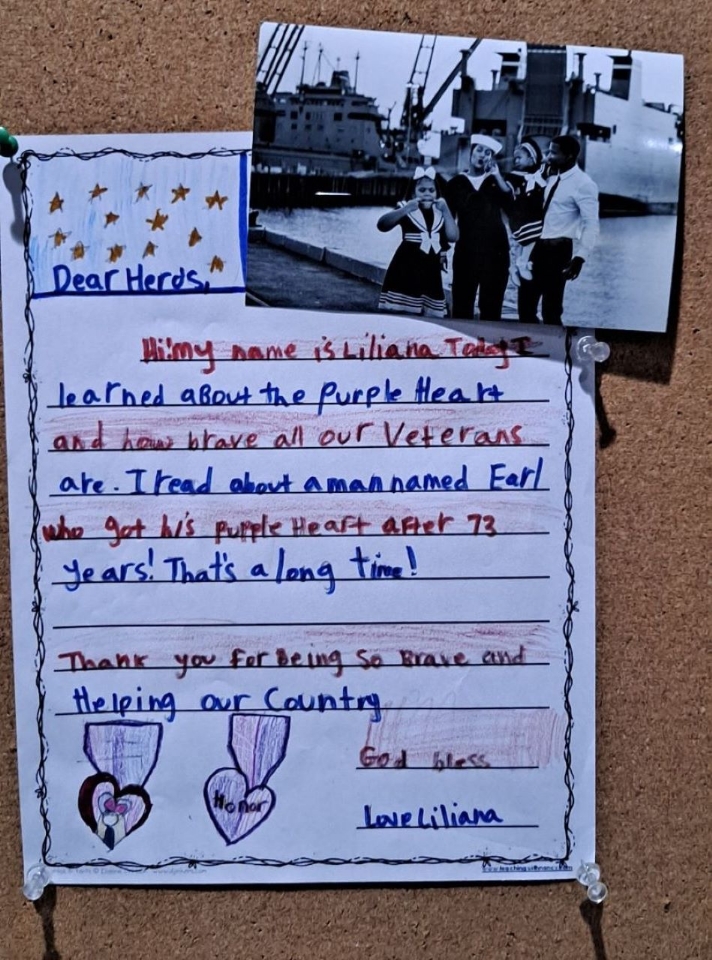 Dear Heros,
Hi! my name is Liliana Today I
learned aBout the Purple Heart
and how brave all our Veterans
are. I read about a man named Earl
who got his purple Heart after 73
years! That's a long time!
Thank you for Being So Brave and
Helping our Country
Honor
God bless
Love Liliana